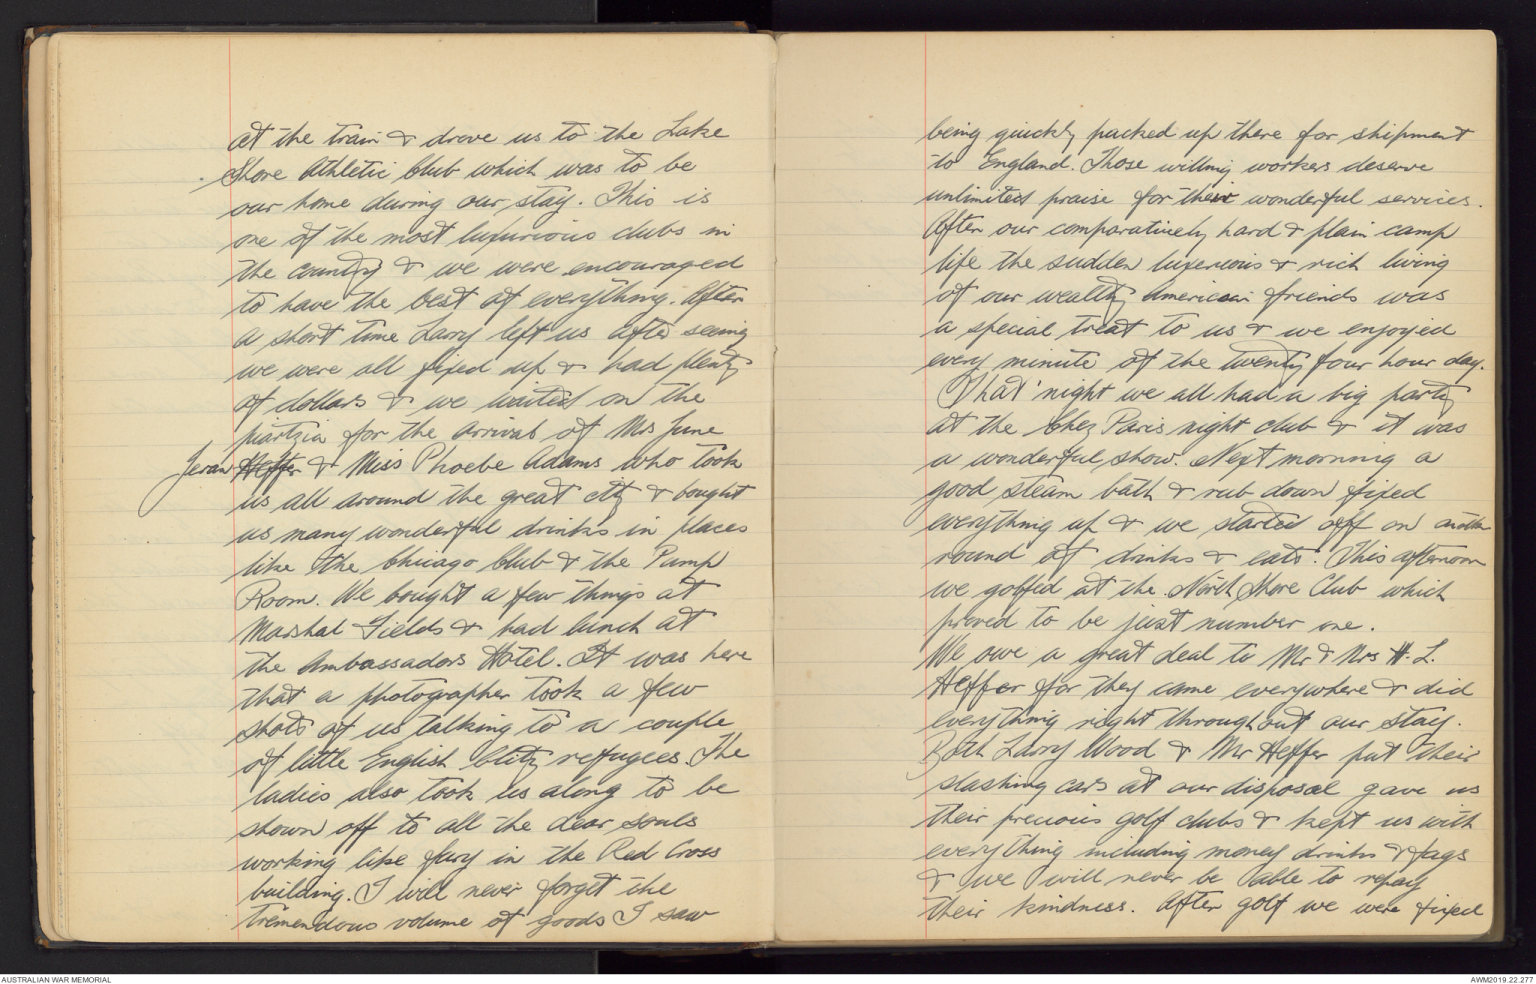 at the train & drove us to the Lake
Shore Athletic Club which was to be
our home during our stay. This is
one of the most luxurious clubs in
the country & we were encouraged
to have the best of everything. After
a short time Larry left us after seeing
we were all fixed up & had plenty
of dollars & we waited on the
piartzia for the arrival of Mrs June
Jevan Heffer & Miss Phoebe Adams who took
us all around the great city & bought
us many wonderful drinks in places
like the Chicago Club & the Pump
Room. We bought a few things at
Marshal Fields & had lunch at
the Ambassadors Hotel. It was here
that a photographer took a few
shots of us talking to a couple
of little English blitz refugees. The
ladies also took us along to be
shown off to all the dear souls
working like fury in the Red Cross
building. I will never forget the
tremendous volume of goods I saw
being quickly packed up there for shipment
to England. Those willing workers deserve
unlimited praise for their wonderful services.
After our comparatively hard & plain camp
life the sudden luxerious & rich living
of our wealthy American friends was
a special treat to us & we enjoyed
every minute of the twenty four hour day.
That night we all had a big party
at the Chez Paris night club & it was
a wonderful show. Next morning a
good steam bath & rub down fixed
everything up & we started off on another
round of drinks & eats. This afternoon
we golfed at the North Shore Club which
proved to be just number one.
We owe a great deal to Mr & Mrs H. L.
Heffer for they came everywhere & did
everything right throughout our stay.
Both Larry Wood & Mr Heffer put their
slashing cars at our disposal gave us
their precious golf clubs & kept us with
everything including money drinks & fags
& we will never be able to repay
their kindness. After golf we were fixed
AUSTRALIAN WAR MEMORIAL
AWM2019.22.277